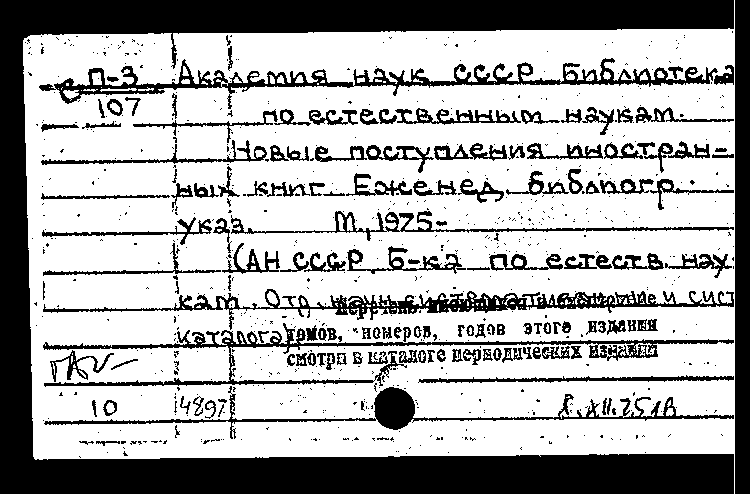 П-3 Академия наук СССР. Библиотека
с 107 по естественным наукам.
Новые поступления иностран-
ных книг. Еженед. библиогр.
указ. М., 1975-
(АН СССР. Б-ка по естеств. нау-
кам. Отд. и сист
каталога)
Перечень имеющихся в
томов, номеров, годов этого издания
смотри в каталоге периодических изданий
10 4897